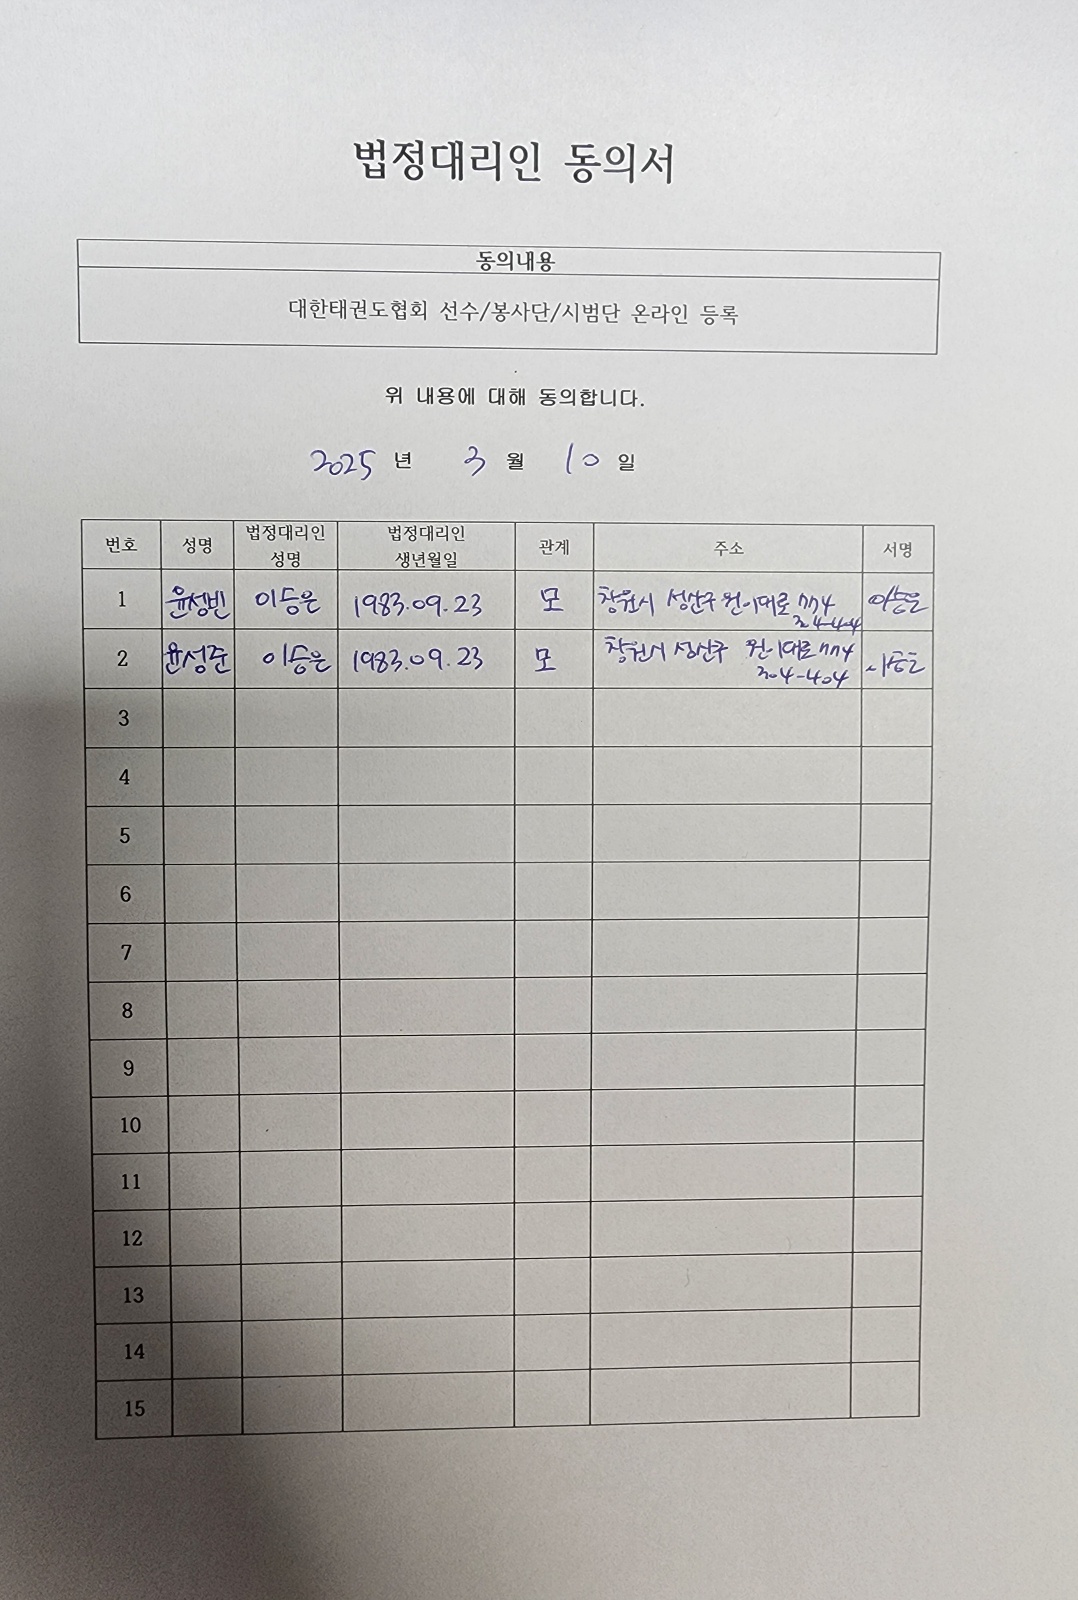 법정대리인 동의서
동의내용
대한태권도협회 선수/봉사단/시범단 온라인 등록
위 내용에 대해 동의합니다.
2025 년 3 월 10 일
번호 성명 법정대리인 성명 법정대리인 생년월일 관계 주소 서명
1 윤성빈 이승은 1983.09.23 모 창원시 성산구 원이대로 774 이승은
304-404
2 윤성준 이승은 1983.09.23 모 창원시 성산구 원이대로 774 이승은
304-404
3
4
5
6
7
8
9
10
11
12
13
14
15